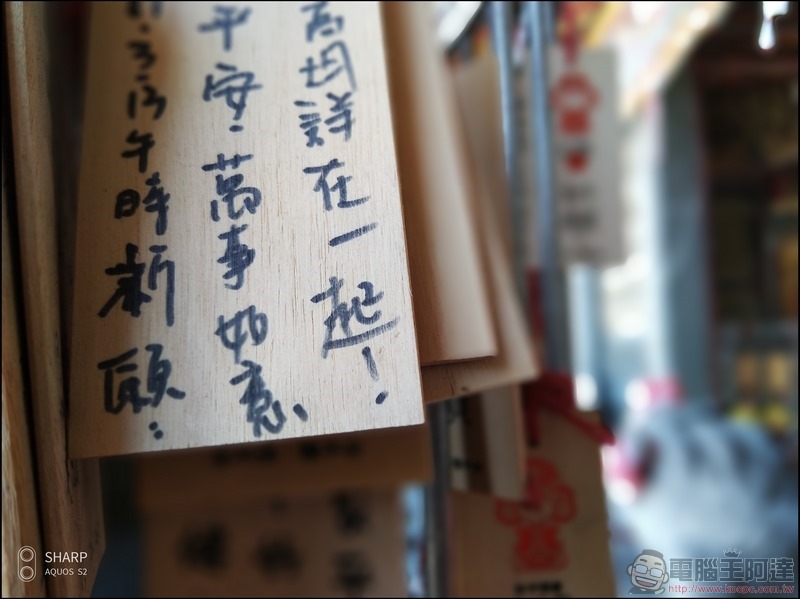 高均詳在一起!
平安、萬事如意、
.3.13午時新願:
SHARP
AQUOS S2
電腦王阿達
http://www.kocpc.com.tw